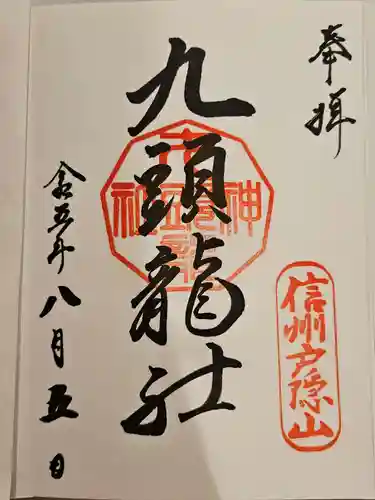 奉拝
信州戸隠山
九頭龍社
令五年八月五日